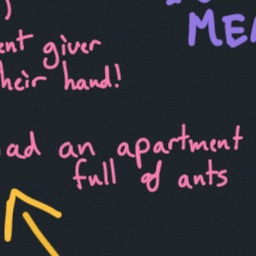 MEA
ent giver
heir hand!
ad an apartment
full of ants